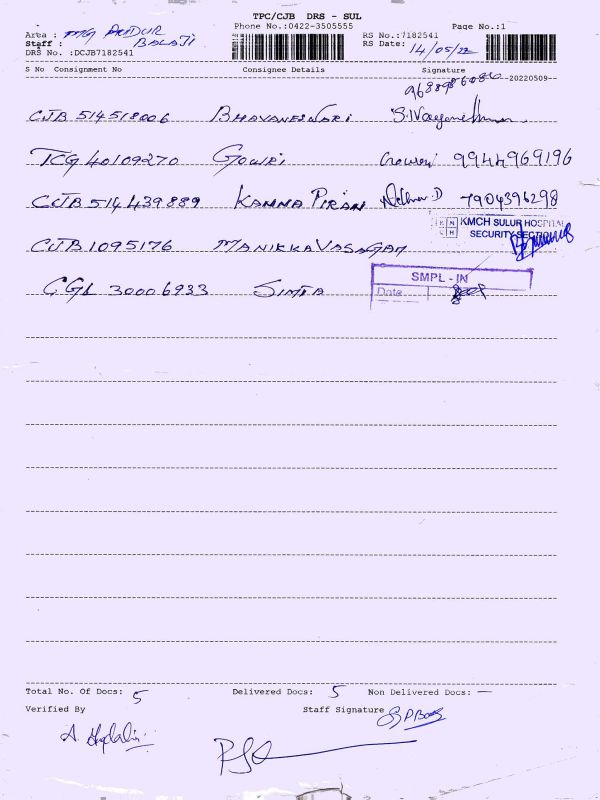 TPC/CJB DRS - SUL
Phone No.:0422-3505555
Page No.:1
Area : PUDUR
RS No.:7182541
Staff : BALAJI
RS Date: 14/05/22
DRS No. :DCJB7182541
S No Consignment No Consignee Details Signature
--20220509--
9688986086
CJB 514518006 BHAVANESWARI
TCG 40109270 GOWRI Gowri 9944969196
CJB 514439889 KANNA PIRAN 7904396298
KMCH SULUR HOSPITAL
SECURITY SECTION
CJB 1095176 MANIKKAVASAGAM
CGL 30006933
SMPL - IN
Date
Total No. Of Docs: 5 Delivered Docs: 5 Non Delivered Docs: —
Verified By Staff Signature